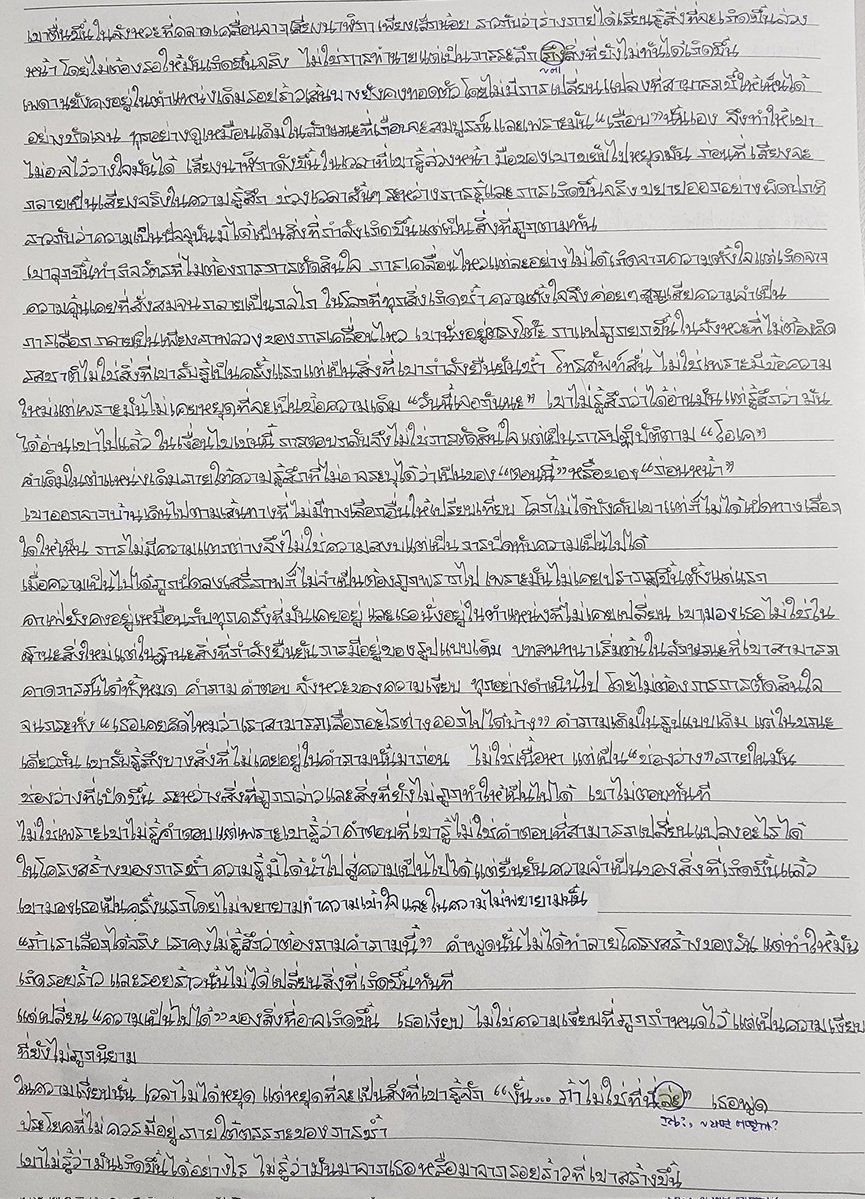 เขาตื่นขึ้นในจังหวะที่คลาดเคลื่อนจากเสียงนาฬิกาเพียงเล็กน้อย ราวกับว่าร่างกายได้เรียนรู้สิ่งที่จะเกิดขึ้นล่วง
หน้าโดยไม่ต้องรอให้มันเกิดขึ้นจริง ไม่ใช่การทำนายแต่เป็นการระลึกถึงสิ่งที่ยังไม่ทันได้เกิดขึ้น
เพดานยังคงอยู่ในตำแหน่งเดิมรอยร้าวเส้นบางยังคงทอดตัวโดยไม่มีการเปลี่ยนแปลงที่สามารถชี้ให้เห็นได้
อย่างชัดเจน ทุกอย่างดูเหมือนเดิมในลักษณะที่เกือบจะสมบูรณ์ และเพราะมัน“เกือบ”นั้นเอง จึงทำให้เขา
ไม่อาจไว้วางใจมันได้ เสียงนาฬิกาดังขึ้นในเวลาที่เขารู้ล่วงหน้า มือของเขาขยับไปหยุดมัน ก่อนที่เสียงจะ
กลายเป็นเสียงจริงในความรู้สึก ช่วงเวลาสั้นๆ ระหว่างการรู้และการเกิดขึ้นจริงขยายออกอย่างผิดปกติ
ราวกับว่าความเป็นปัจจุบันมิได้เป็นสิ่งที่กำลังเกิดขึ้นแต่เป็นสิ่งที่ถูกตามทัน
เขาลุกขึ้นทำกิจวัตรที่ไม่ต้องการการตัดสินใจ การเคลื่อนไหวแต่ละอย่างไม่ได้เกิดจากความตั้งใจแต่เกิดจาก
ความคุ้นเคยที่สั่งสมจนกลายเป็นกลไก ในโลกที่ทุกสิ่งเกิดซ้ำ ความตั้งใจจึงค่อยๆสูญเสียความจำเป็น
การเลือก กลายเป็นเพียงภาพลวงของการเคลื่อนไหว เขานั่งอยู่ตรงโต๊ะ กาแฟถูกยกขึ้นในจังหวะที่ไม่ต้องคิด
รสชาติไม่ใช่สิ่งที่เขารับรู้เป็นครั้งแรกแต่เป็นสิ่งที่เขากำลังยืนยันซ้ำ โทรศัพท์สั่น ไม่ใช่เพราะมีข้อความ
ใหม่แต่เพราะมันไม่เคยหยุดที่จะเป็นข้อความเดิม “วันนี้เจอกันนะ” เขาไม่รู้สึกว่าได้อ่านมันแต่รู้สึกว่า มัน
ได้อ่านเขาไปแล้ว ในเงื่อนไขเช่นนี้ การตอบกลับจึงไม่ใช่การตัดสินใจ แต่เป็นการปฏิบัติตาม “โอเค”
คำเดิมในตำแหน่งเดิมภายใต้ความรู้สึกที่ไม่อาจระบุได้ว่าเป็นของ“ตอนนี้”หรือของ“ก่อนหน้า”
เขาออกจากบ้านเดินไปตามเส้นทางที่ไม่มีทางเลือกอื่นให้เปรียบเทียบ โลกไม่ได้บังคับเขาแต่ก็ไม่ได้เปิดทางเลือก
ใดให้เห็น การไม่มีความแตกต่างจึงไม่ใช่ความสงบแต่เป็น การปิดทับความเป็นไปได้
เมื่อความเป็นไปได้ถูกปิดลงเสรีภาพก็ไม่จำเป็นต้องถูกพรากไป เพราะมันไม่เคยปรากฏขึ้นตั้งแต่แรก
คาเฟ่ยังคงอยู่เหมือนกับทุกครั้งที่มันเคยอยู่ และเธอนั่งอยู่ในตำแหน่งที่ไม่เคยเปลี่ยน เขามองเธอไม่ใช่ใน
ฐานะสิ่งใหม่แต่ในฐานะสิ่งที่กำลังยืนยันการมีอยู่ของรูปแบบเดิม บทสนทนาเริ่มต้นในลักษณะที่เขาสามารถ
คาดการณ์ได้ทั้งหมด คำถาม คำตอบ จังหวะของความเงียบ ทุกอย่างดำเนินไป โดยไม่ต้องการการตัดสินใจ
จนกระทั่ง “เธอเคยคิดไหมว่าเราสามารถเลือกอะไรต่างออกไปได้บ้าง” คำถามเดิมในรูปแบบเดิม แต่ในขณะ
เดียวกัน เขารับรู้ถึงบางสิ่งที่ไม่เคยอยู่ในคำถามนั้นมาก่อน ไม่ใช่เนื้อหา แต่เป็น“ช่องว่าง”ภายในมัน
ช่องว่างที่เปิดขึ้น ระหว่างสิ่งที่ถูกกล่าวและสิ่งที่ยังไม่ถูกทำให้เป็นไปได้ เขาไม่ตอบทันที
ไม่ใช่เพราะเขาไม่รู้คำตอบ แต่เพราะเขารู้ว่า คำตอบที่เขารู้ไม่ใช่คำตอบที่สามารถเปลี่ยนแปลงอะไรได้
ในโครงสร้างของการซ้ำ ความรู้มิได้นำไปสู่ความเป็นไปได้แต่ยืนยันความจำเป็นของสิ่งที่เกิดขึ้นแล้ว
เขามองเธอเป็นครั้งแรกโดยไม่พยายามทำความเข้าใจ และในความไม่พยายามนั้น
“ถ้าเราเลือกได้จริง เราคงไม่รู้สึกว่าต้องถามคำถามนี้” คำพูดนั้นไม่ได้ทำลายโครงสร้างของวัน แต่ทำให้มัน
เกิดรอยร้าว และรอยร้าวนั้นไม่ได้เปลี่ยนสิ่งที่เกิดขึ้นทันที
แต่เปลี่ยน “ความเป็นไปได้”ของสิ่งที่อาจเกิดขึ้น เธอเงียบ ไม่ใช่ความเงียบที่ถูกกำหนดไว้ แต่เป็นความเงียบ
ที่ยังไม่ถูกนิยาม
ในความเงียบนั้น เวลาไม่ได้หยุด แต่หยุดที่จะเป็นสิ่งที่เขารู้จัก “งั้น... ถ้าไม่ใช่ที่นี่ล่ะ” เธอพูด
ประโยคที่ไม่ควรมีอยู่ ภายใต้ตรรกะของการซ้ำ
เขาไม่รู้ว่ามันเกิดขึ้นได้อย่างไร ไม่รู้ว่ามันมาจากเธอ หรือมาจากรอยร้าวที่เขาสร้างขึ้น